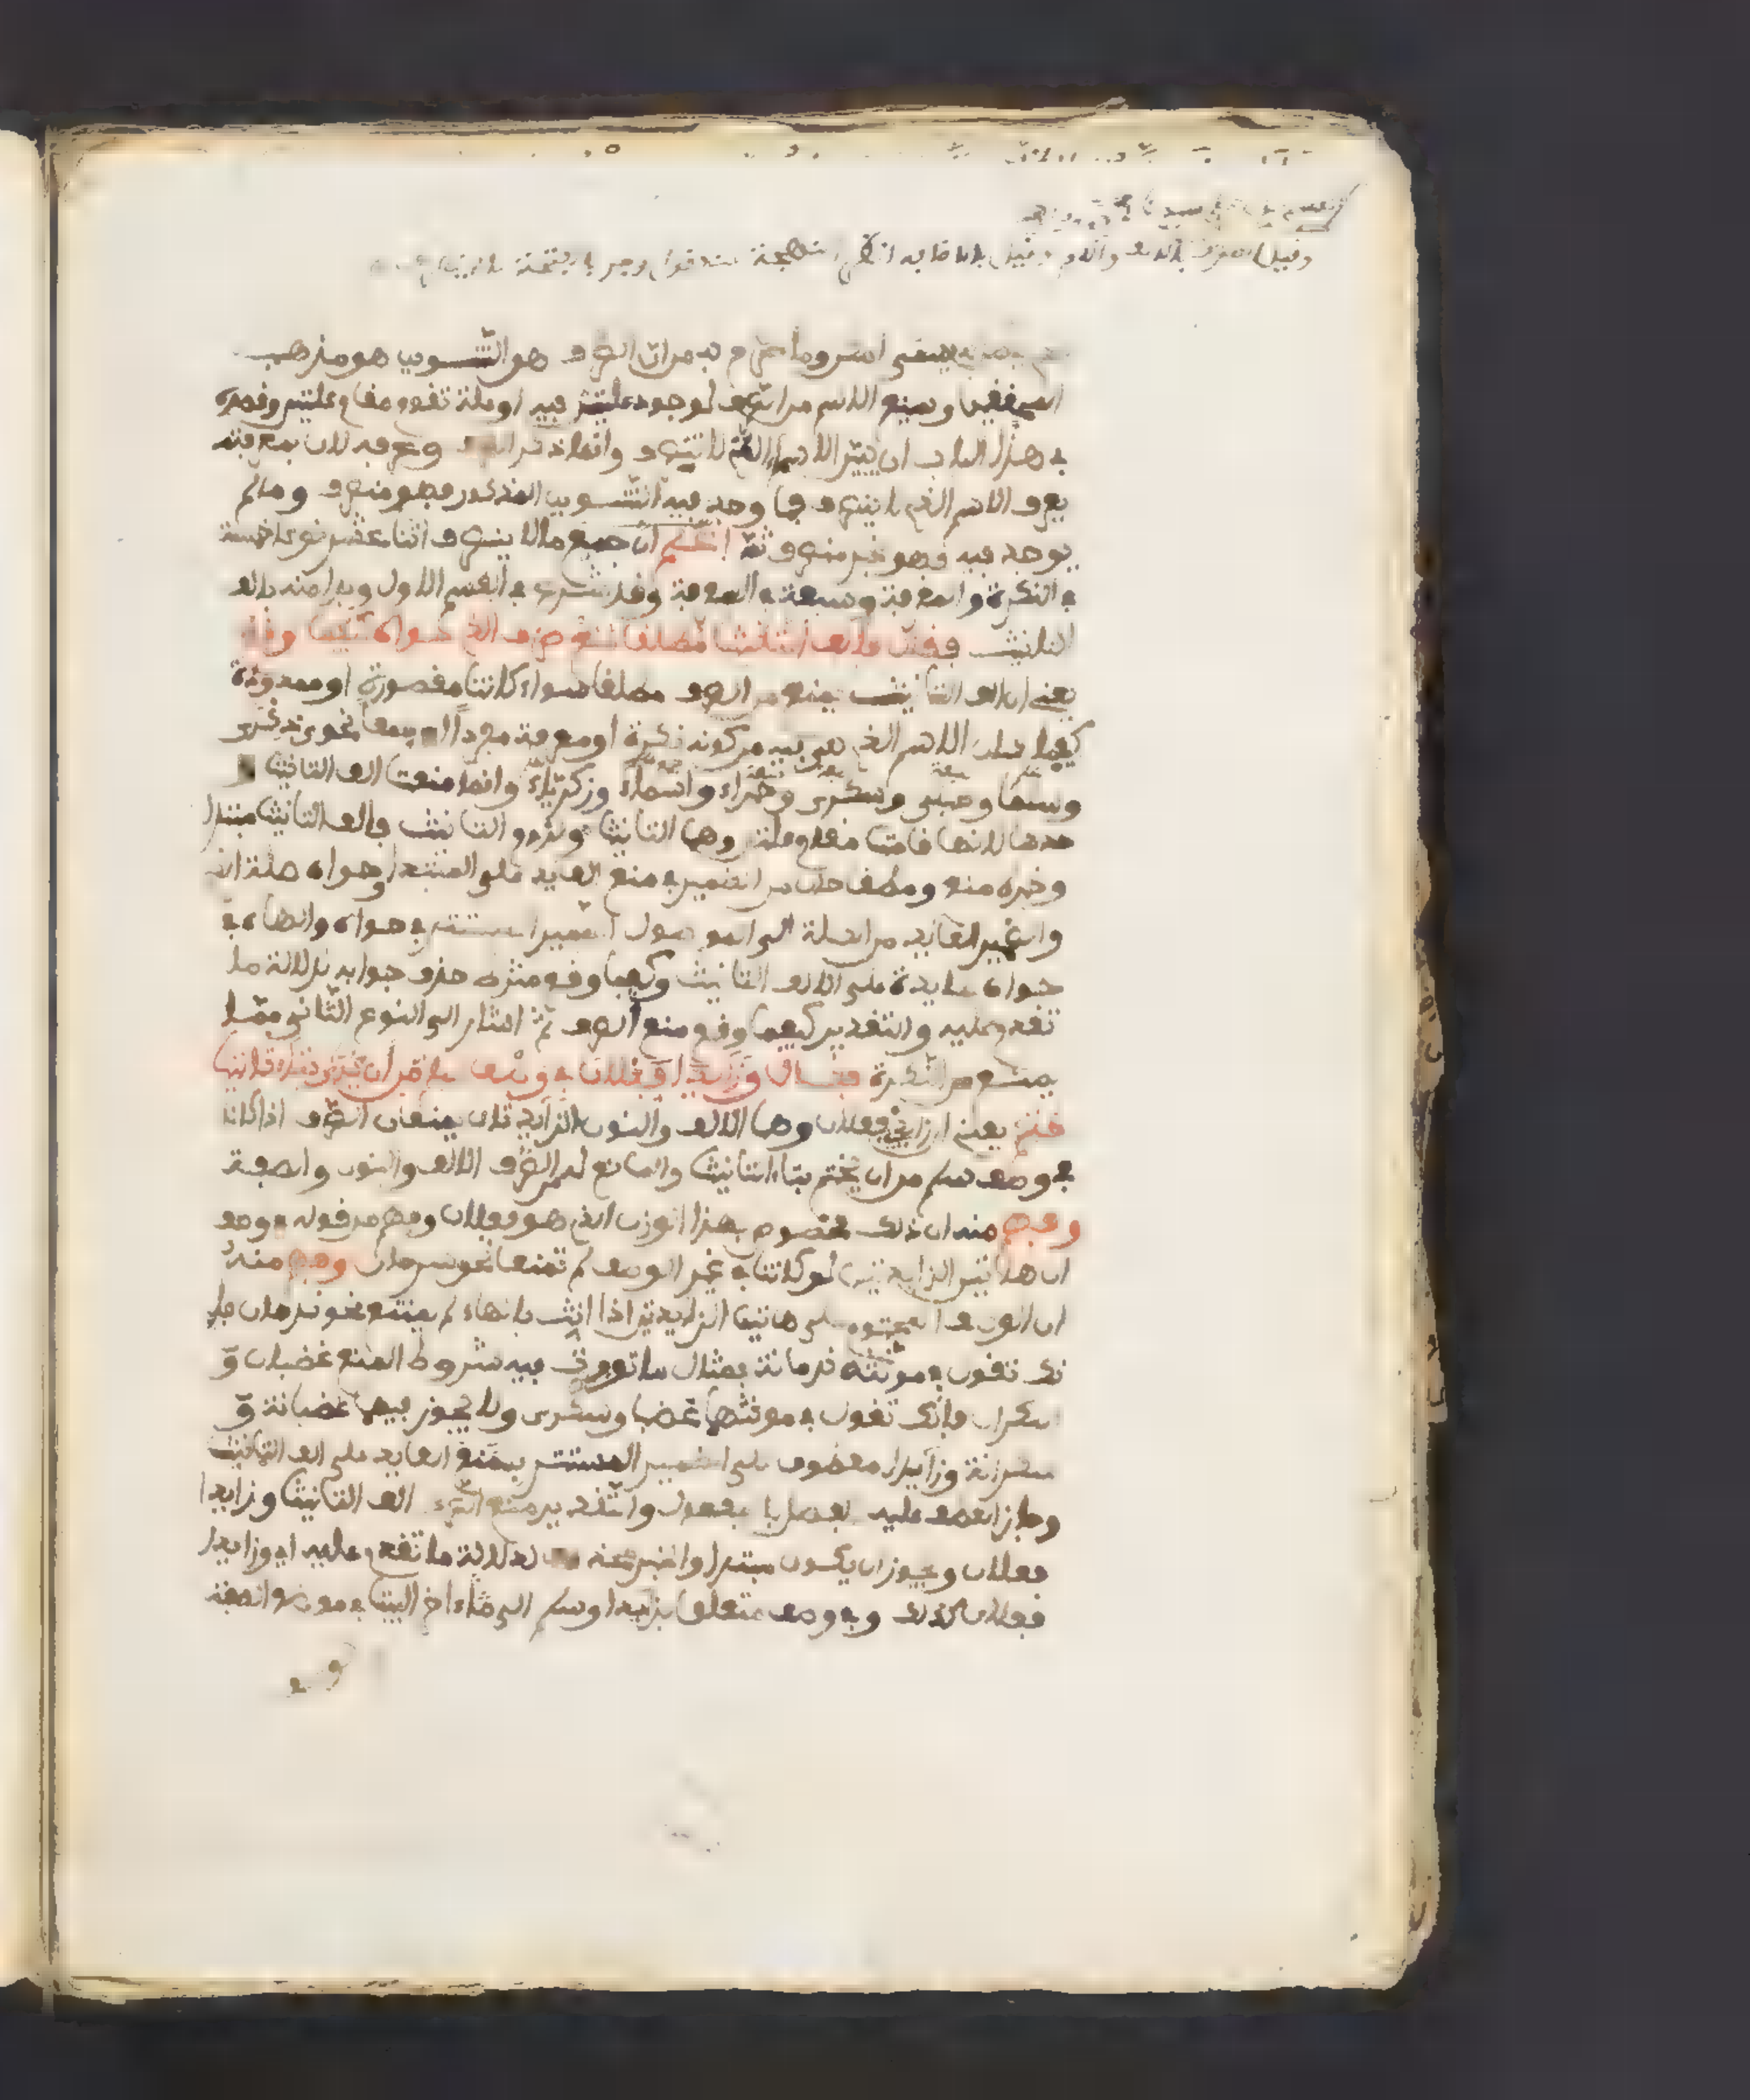 وقيل المعرف بالالف واللام وقيل بالاضافة
هو التنويـن هو مذهب
المحققين ومنع الاسم من الصرف لوجود علتين فيه او علة تقوم مقام علتين وقصده
في هذا الباب ان يبين الاسماء التي لا تنصرف وانما ذكر الصرف وعرفه لان بمعرفته
يعرف الاسم الذي لا ينصرف فما وجد فيه التنويـن المذكور فهو منصرف وما لم
يوجد فيه فهو غير منصرف ثم اعلم ان جميع ما لا ينصرف اثنا عشر نوعا خمسة
في النكرة والمعرفة وسبعة في المعرفة وقد شرع في القسم الاول وبدا منه بالف
التانيث فقال فالف التانيث مطلقا منع صرف الذي حواه كيفما وقع
يعني ان الف التانيث يمنع من الصرف مطلقا سواء كانت مقصورة او ممدودة
كيفما كان الاسم الذي هي فيه من كونه نكرة او معرفة مفردا او جمعا نحو ذكرى
وسلمى وحبلى وسكرى وحمراء واسماء وزكرياء وانما منعت الف التانيث
وحدها لانها قامت مقام علتين وهما التانيث ولزوم التانيث فالف التانيث مبتدا
وخبره منع ومطلقا حال من الضمير في منع العايد على المبتدا وحواه صلة الذي
والضمير العايد من الصلة الى الموصول الضمير المستتر في حواه والهاء في
حواه عايدة على الالف التانيث وكيفما وقع شرط حذف جوابه لدلالة ما
تقدم عليه والتقدير كيفما وقع منع الصرف ثم اشار الى النوع الثاني مما
يمتنع من النكرة فقال وزايدا فعلان في وصف سلم من ان يرى بتاء تانيث
ختم يعني ان زايدي فعلان وهما الالف والنون الزايدتان يمنعان الصرف اذا كانا
في وصف سلم من ان يختم بتاء التانيث والمانع له من الصرف الالف والنون والصفة
وفهم منه ان ذلك مخصوص بهذا الوزن الذي هو فعلان وفهم من قوله في وصف
ان هاتين الزايدتين لو كانتا في غير الوصف لم تمنعا نحو سرحان وفهم منه
ان الوصف المحتوي على هاتين الزايدتين اذا انث بالهاء لم يمتنع نحو ندمان فا
نك تقول في مونثه ندمانة فمثال ما توفرت فيه شروط المنع غضبان و
سكران فانك تقول في مونثها غضبى وسكرى ولا يجوز فيهما غضبانة و
سكرانة وزايدا معطوف على الضمير المستتر في منع العايد على الف التانيث
وجاز العطف عليه لفصل بالمفعول والتقدير منع الصرف الف التانيث وزايدا
فعلان ويجوز ان يكون مبتدا والخبر محذوف لدلالة ما تقدم عليه اي وزايدا
فعلان كذلك وفي وصف متعلق بزايدا وسلم الى اخر البيت في موضع الصفة